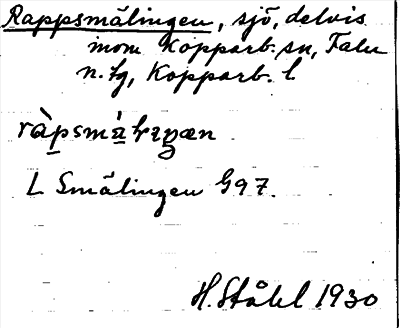 Rappsmålingen, sjö, delvis
inom Kopparb. sn, Falu
n. tg, Kopparb. l
L Smålingen G97.
H. Ståhl 1930